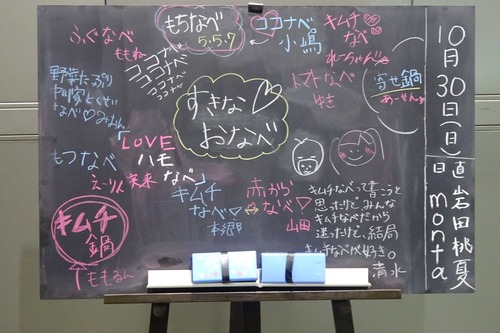 10月30日(日)
日直 岩田桃夏
monta
すきな♡
おなべ
ふぐなべ
ももね
もちなべ
5.5.7
ココナベ
小嶋
キムチ
なべ
れーちゃん
トマトなべ
ゆき
寄せ鍋
あーせん
ココナベ
ココナベ
ココナベ
ココナベ
野菜たっぷり
なべ♡みおん
もつなべ
えーりん
「LOVE
ハモ
なべ」
未来
キムチ
なべ♡
本郷
赤から
なべ♡!
山田
キムチ
鍋
↑ももるん
キムチなべって書こうと
思ったけど、みんな
キムチなべだから
迷ったけど、結局
キムチなべが好き。
清水